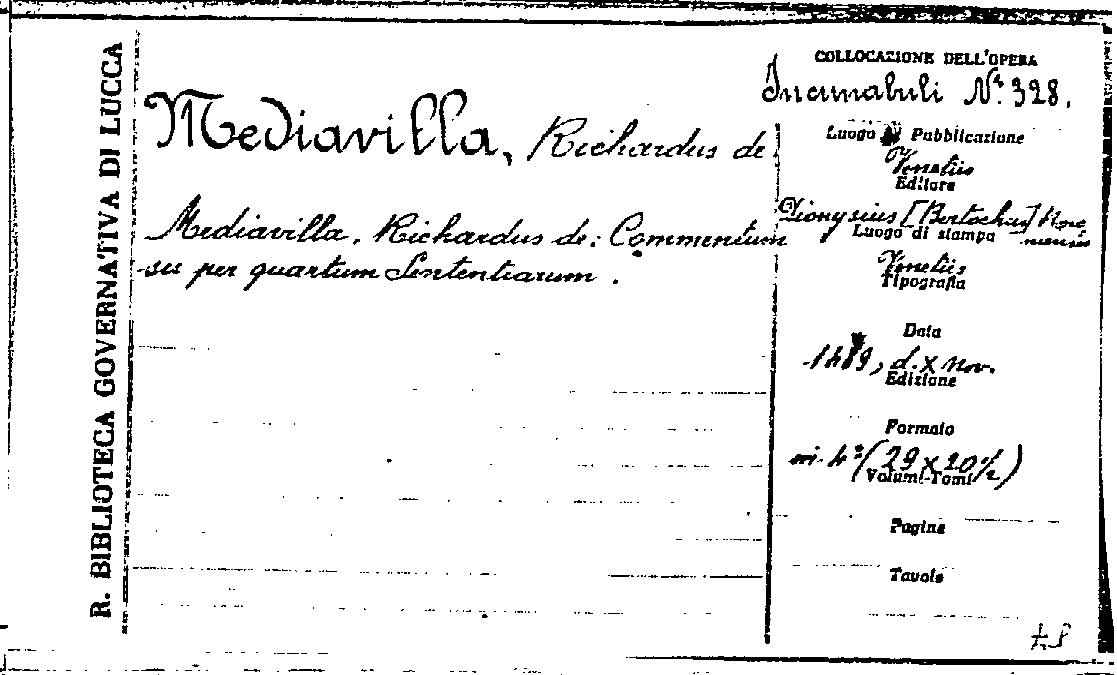 R. BIBLIOTECA GOVERNATIVA DI LUCCA
Mediavilla, Richardus de
Mediavilla, Richardus de: Commentum
su per quartum Sententiarum.
COLLOCAZIONE DELL'OPERA
Incunabuli N.° 328.
Luogo Pubblicazione
Venetiis
Editore
Dionysius [Bertochus] Bono
nensis
Luogo di stampa
Venetiis
Tipografia
Data
1489, d. X nov.
Edizione
Formato
in-4° (29 x 20½)
Volumi-Tomi
Pagine
Tavole